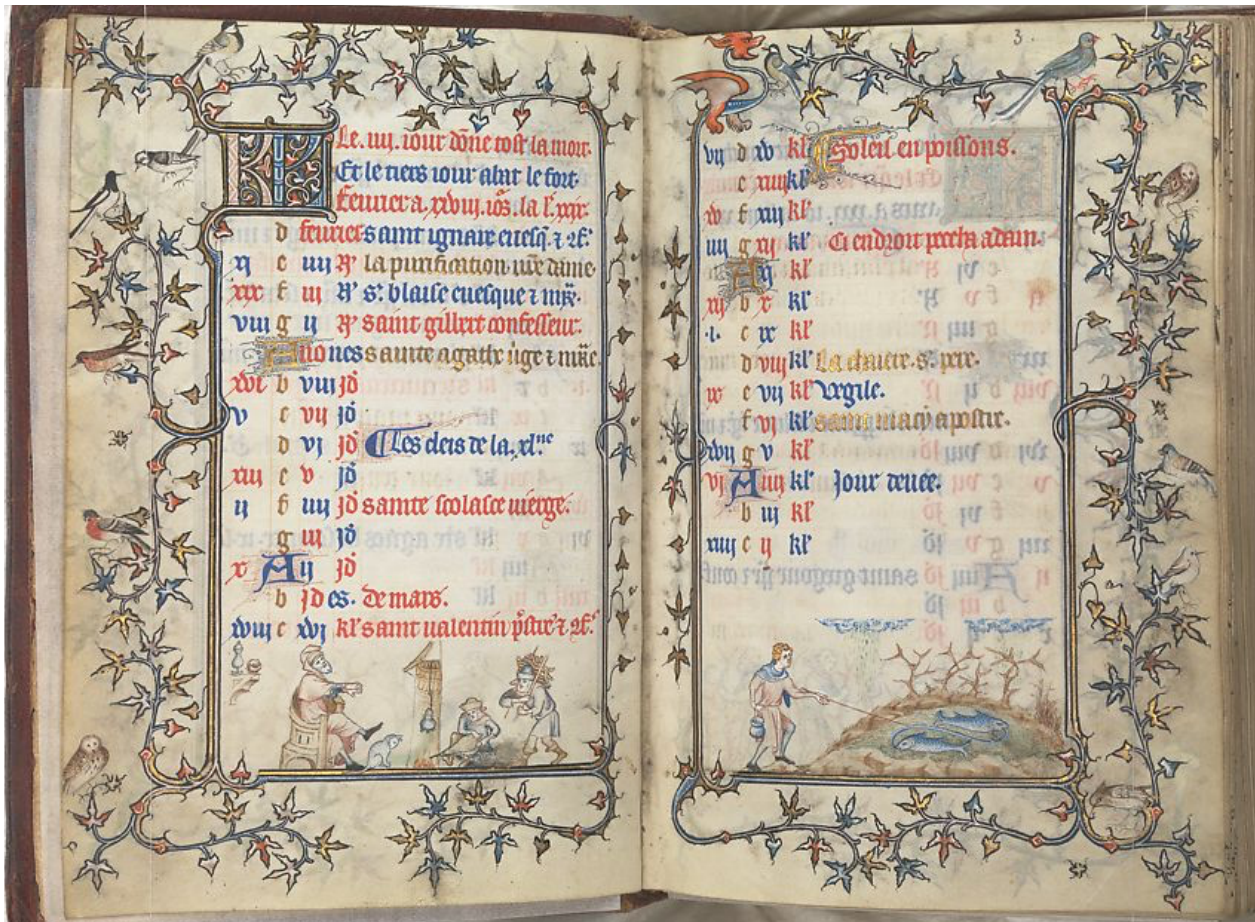 Le .iiij. iour dõne tost la mort.
Et le tiers iour abat le fort.
feurier a .xxviij. iõs. la l'. xxix.
d feurier saint ignace euesq. ⁊
xj e iiij saint la purification
xix f iij s'. blaise euesque ⁊ mr̃e.
viij g ij saint gilbert confesseur.
A nones sainte agathe uige ⁊
xvi b viij jd̃
v c vij jd̃
d vj jd̃ Les cleis de la .xl.ne
xiij e v jd̃
ij f iiij jd̃ sainte scolasce uierge.
g iij jd̃
x A ij jd̃
b jdes. de mars.
xviij c xvj kl' saint ualentin p̃stre ⁊
3.
vij d xv kl' Soleil en poissons.
e xiiij kl'
xv f xiij kl'
iiij g xij kl' Ci endroit pecha adam.
A xj kl'
xij b x kl'
.i. c ix kl'
d viij kl' La chaiere. s'. pere.
ix e vij kl' Vegile.
f vj kl' saint apostre.
xvij g v kl'
vj A iiij kl' Jour
b iij kl'
xiiij c ij kl'